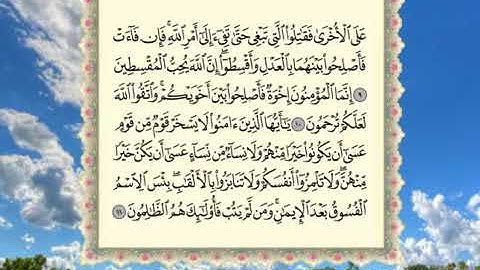 عَلَى ٱلْأُخْرَىٰ فَقَٰتِلُوا۟ ٱلَّتِى تَبْغِى حَتَّىٰ تَفِىٓءَ إِلَىٰٓ أَمْرِ ٱللَّهِ ۚ فَإِن فَآءَتْ
فَأَصْلِحُوا۟ بَيْنَهُمَا بِٱلْعَدْلِ وَأَقْسِطُوٓا۟ ۖ إِنَّ ٱللَّهَ يُحِبُّ ٱلْمُقْسِطِينَ
٩ إِنَّمَا ٱلْمُؤْمِنُونَ إِخْوَةٌ فَأَصْلِحُوا۟ بَيْنَ أَخَوَيْكُمْ ۚ وَٱتَّقُوا۟ ٱللَّهَ
لَعَلَّكُمْ تُرْحَمُونَ ١٠ يَٰٓأَيُّهَا ٱلَّذِينَ ءَامَنُوا۟ لَا يَسْخَرْ قَوْمٌ مِّن قَوْمٍ
عَسَىٰٓ أَن يَكُونُوا۟ خَيْرًا مِّنْهُمْ وَلَا نِسَآءٌ مِّن نِّسَآءٍ عَسَىٰٓ أَن يَكُنَّ خَيْرًا
مِّنْهُنَّ ۖ وَلَا تَلْمِزُوٓا۟ أَنفُسَكُمْ وَلَا تَنَابَزُوا۟ بِٱلْأَلْقَٰبِ ۖ بِئْسَ ٱلِٱسْمُ
ٱلْفُسُوقُ بَعْدَ ٱلْإِيمَٰنِ ۚ وَمَن لَّمْ يَتُبْ فَأُو۟لَٰٓئِكَ هُمُ ٱلظَّٰلِمُونَ ١١